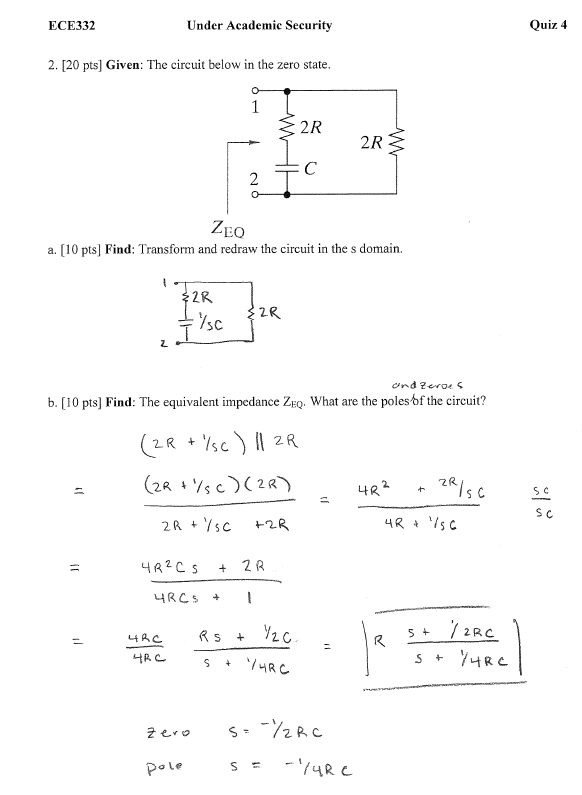 ECE332 Under Academic Security Quiz 4
2. [20 pts] Given: The circuit below in the zero state.
1
2R
2R
C
2
Z_EQ
a. [10 pts] Find: Transform and redraw the circuit in the s domain.
1
2R
1/sC
2R
2
and zeroes
b. [10 pts] Find: The equivalent impedance Z_EQ. What are the poles of the circuit?
(2R + 1/sC) || 2R
= (2R + 1/sC)(2R) / 2R + 1/sC +2R = 4R² + 2R/sC / 4R + 1/sC sC/sC
= 4R²Cs + 2R / 4RCs + 1
= 4RC/4RC Rs + 1/2C / s + 1/4RC = R s + 1/2RC / s + 1/4RC
zero s = -1/2RC
pole s = -1/4RC